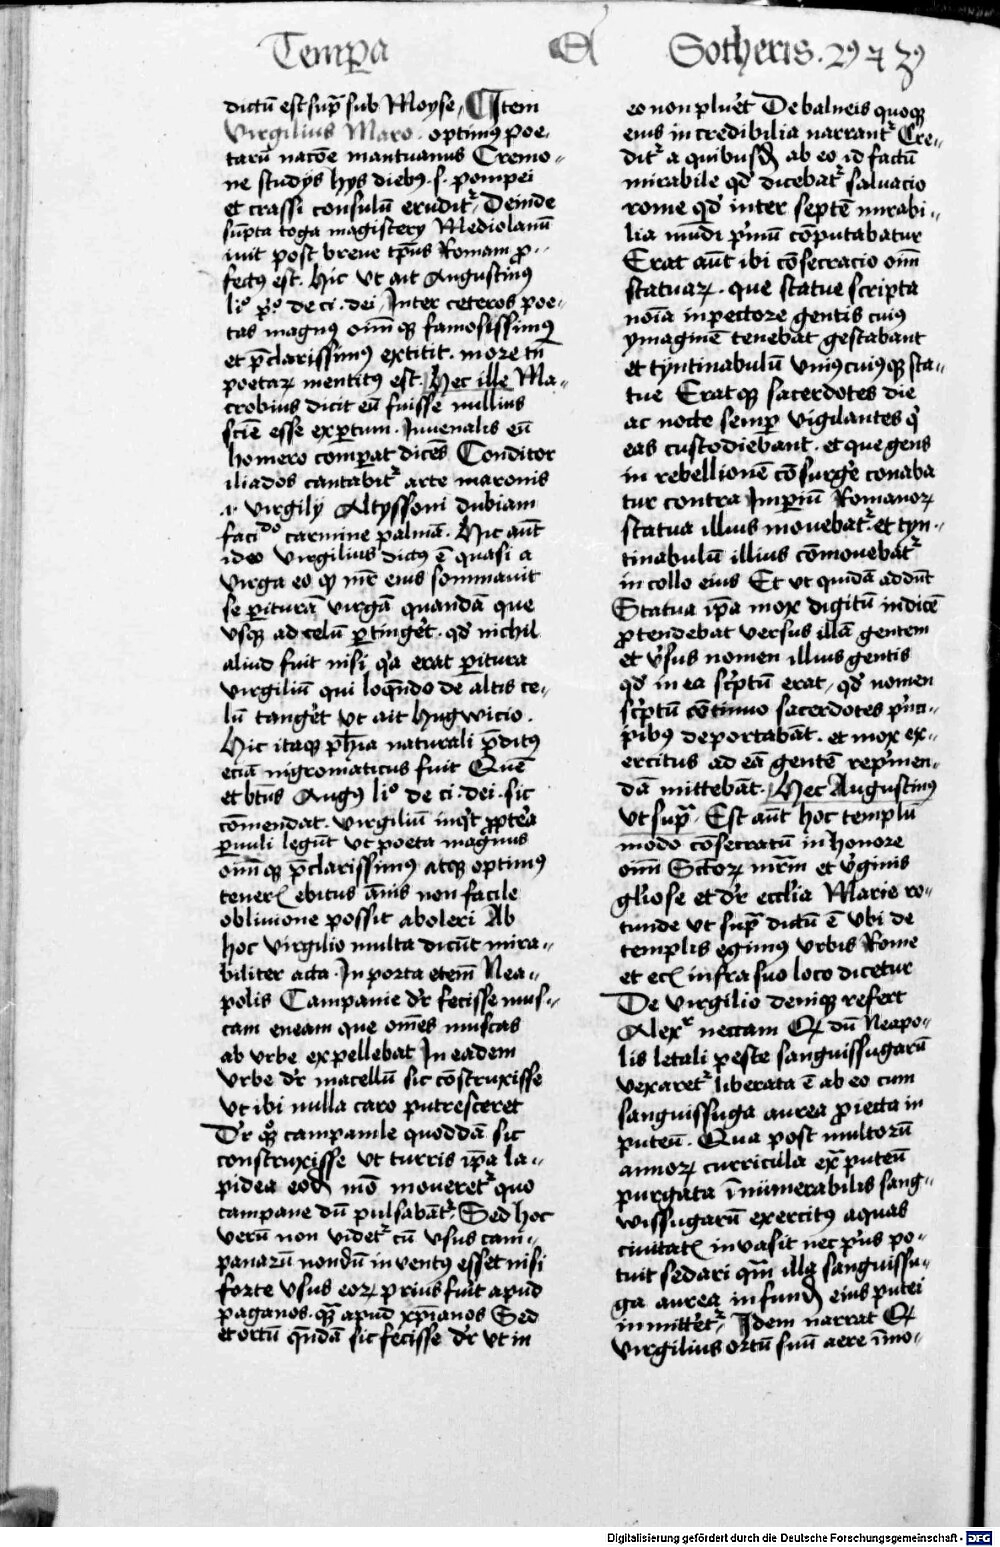 Tempa Et Sotheris. 29 7 39
dictū est sup̄ sub Moyse, Item
Virgilius Maro. optimꝰ poe-
tarū nac̄oe mantuanus Cremo-
ne studijs hijs diebꝫ .s. pompei
et crassi consulū eruditʳ, Deinde
sūpta toga magisterij Mediolanū
iuit post breue tp̄us Romam ꝓ-
fectꝰ est. Hic vt ait Augustinꝰ
liº pº de ci. dei, Inter ceteros poe-
tas magnꝰ oīm qꝫ famosissimꝰ
et p̄clarissimꝰ extitit. more tn̄
poetaꝝ mentitꝰ est. Hec ille Ma-
crobius dicit eū fuisse nullius
scīe esse exꝑtum. Juuenalis eū
homero comꝑat dicēs Conditor
iliados cantabitʳ arte maronis
.i. virgilij Altyssoni dubiam
faciᵈᵒ carmine palmā. Hic aūt
ideo virgilius dictꝰ ē quasi a
virga eo qꝫ mr̄ eius sommauit
se ꝑiturā virgā quandā que
vsqꝫ ad celū ꝑting'et. qd' nichil
aliud fuit nisi q'a erat ꝑitura
virgiliū qui loqn̄do de altis ce-
lū tang'et vt ait hugwicio.
Hic itaqꝫ ph̄ia naturali p̄ditꝰ
eciā nigromaticus fuit Quē
et btūs Augꝰ liº de ci. dei. sic
cōmendat. virgiliū inq't ꝓpt'ea
ꝑuuli legūt vt poeta magnus
oīm qꝫ p̄clarissimꝰ atqꝫ optimꝰ
teneris ebitus ānis non facile
obliuione possit aboleri Ab
hoc virgilio multa dicūt mira-
biliter acta. In porta eteni Nea-
polis Campanie dr̄ fecisse mus-
cam eneam que om̄es muscas
ab vrbe expellebat In eadem
vrbe dr̄ macellū sic cōstruxisse
vt ibi nulla caro putresceret
Dr̄ qꝫ campanile quoddā sic
construxisse vt turris ip̄a la-
pidea eod' mō moueretʳ quo
campane dū pulsabātʳ. Sed hoc
verū non videtʳ cū vsus cam-
panarū nondū inuentꝰ esset nisi
forte vsus eoꝝ prius fuit apud
paganos. qꝫ apud xp̄ianos Sed
et ortū qn̄dā sic fecisse dr̄ vt in
eo non plu'et De balneis quoqꝫ
eius incredibilia narrantʳ Cre-
ditʳ a quibusd' ab eo id factū
mirabile qd' dicebatʳ saluacio
rome qd' inter septē mirabi-
lia mūdi p'mū cōputabatur
Erat aūt ibi cōsecracio oīm
statuaꝝ. que statue scripta
nōia in pectore gentis cuiꝰ
ymaginē tenebat gestabant
et tyntinabulū vniꝰcuiꝰqꝫ sta-
tue Eratqꝫ sacerdotes die
ac nocte semꝑ vigilantes q'
eas custodiebant. et que gens
in rebellionē cōsurg'e conaba
tur contra Imꝑiū Romanoꝝ
statua illius mouebatʳ. et tyn-
tinabulū illius cōmouebatʳ
in collo eius Et vt quidā addūt
Statua ip̄a mox digitū indicē
ꝓtendebat versus illā gentem
et v'sus nomen illius gentis
qd' in ea sc'ptū erat, qd' nomen
sc'ptū cōtinuo sacerdotes p'nci-
pibus deportabāt. et mox ex-
ercitus ad eā gentē rep'men-
dā mittebāt. Hec Augustinꝰ
vt sup̄. Est aūt hoc templū
modo cōsecratū in honore
oīm Sctoꝝ mr̄m et v'ginis
gl'iose et dr̄ eccl'ia Marie ro-
tunde vt sup̄ dictū ē vbi de
templis egimꝰ vrbis Rome
et ec̄ infra suo loco dicetur
De virgilio deniqꝫ refert
Alexʳ neccam Qꝫ dū Neapo-
lis letali peste sanguissugarū
vexaretʳ liberata ē ab eo cum
sanguissuga aurea ꝓiecta in
puteū. Qua post multorū
annoꝝ curricula ex̄ puteū
purgata īnumerabilis sang-
wissugarū exercitꝰ aquas
ciuitatis inuasit nec p'us po-
tuit sedari qm̄ illa sanguissu-
ga aurea in fund' eius putei
inmitt'etʳ, Idem narrat Qꝫ
virgilius ortū suū aere īmo-
Digitalisierung gefördert durch die Deutsche Forschungsgemeinschaft - DFG